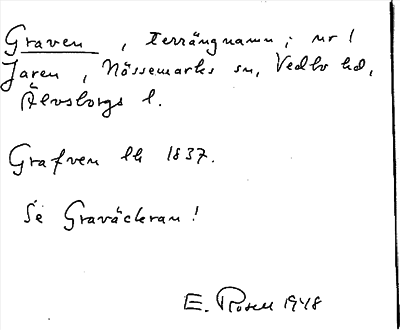 Graven, terrängnamn; nr 1
Jaren, Nössemarks sn, Vedbo hd,
Älvsborgs l.
Grafven lh 1837.
Se Graväckran!
E. Rosell 1948